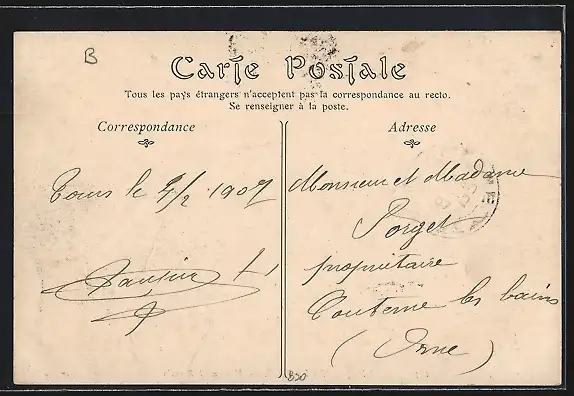 B
Carte Postale
Tous les pays étrangers n'acceptent pas la correspondance au recto.
Se renseigner à la poste.
Correspondance
Adresse
Tours le 4/2 1907
Monsieur et Madame
Forget
propriétaire
Couterne les bains
(Orne)
B20